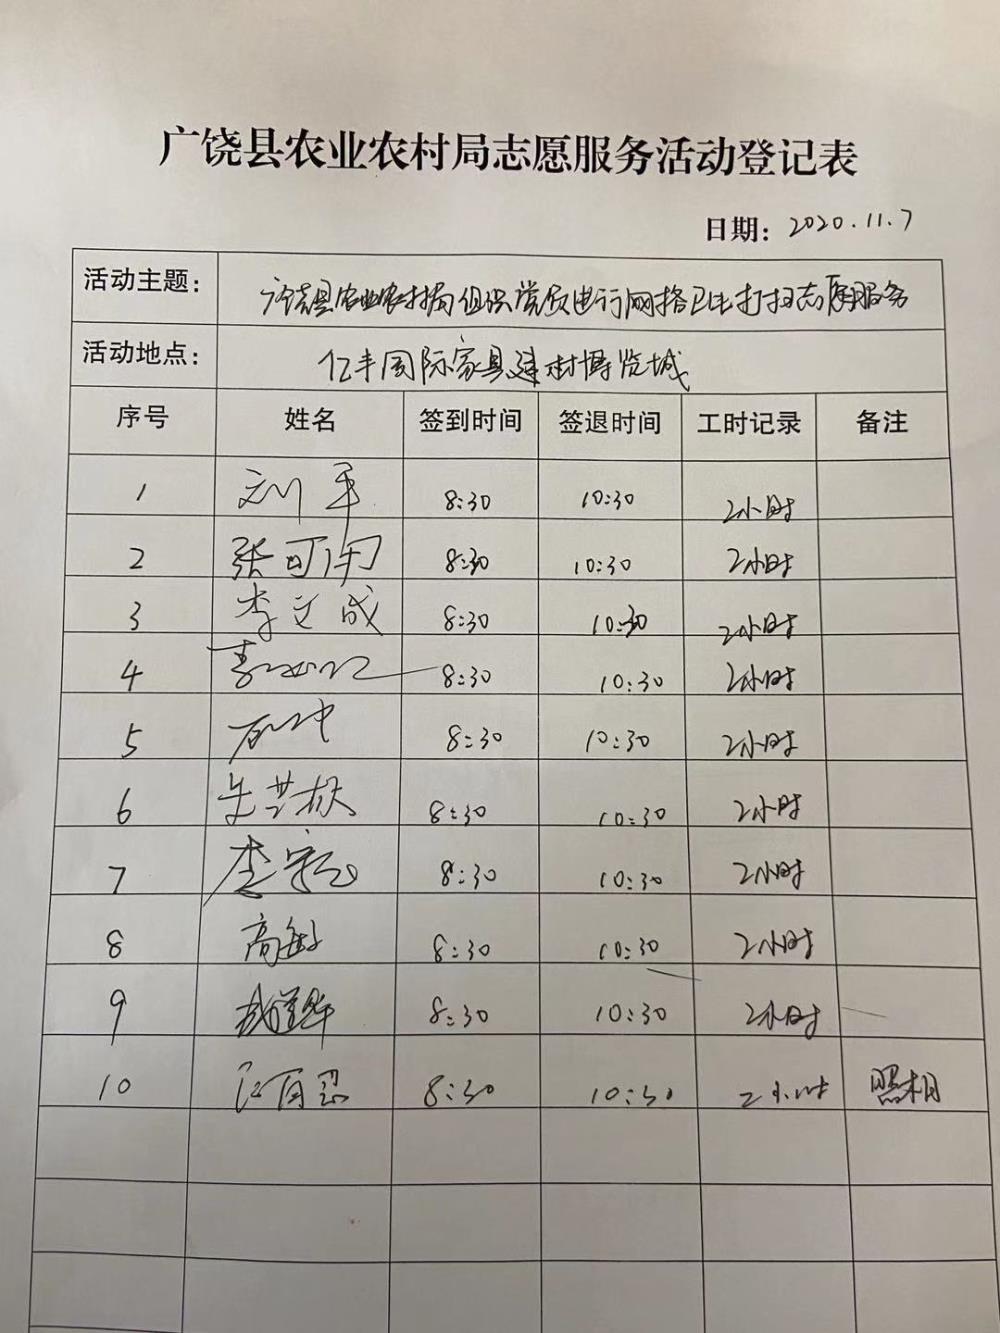 广饶县农业农村局志愿服务活动登记表
日期：2020.11.7
活动主题： 广饶县农业农村局组织党员进行网格卫生打扫志愿服务
活动地点： 亿丰国际家具建材博览城
序号 姓名 签到时间 签退时间 工时记录 备注
1 刘军 8:30 10:30 2小时
2 张可 8:30 10:30 2小时
3 李文成 8:30 10:30 2小时
4 8:30 10:30 2小时
5 8:30 10:30 2小时
6 8:30 10:30 2小时
7 李 8:30 10:30 2小时
8 高敏 8:30 10:30 2小时
9 8:30 10:30 2小时
10 8:30 10:30 2小时 照相